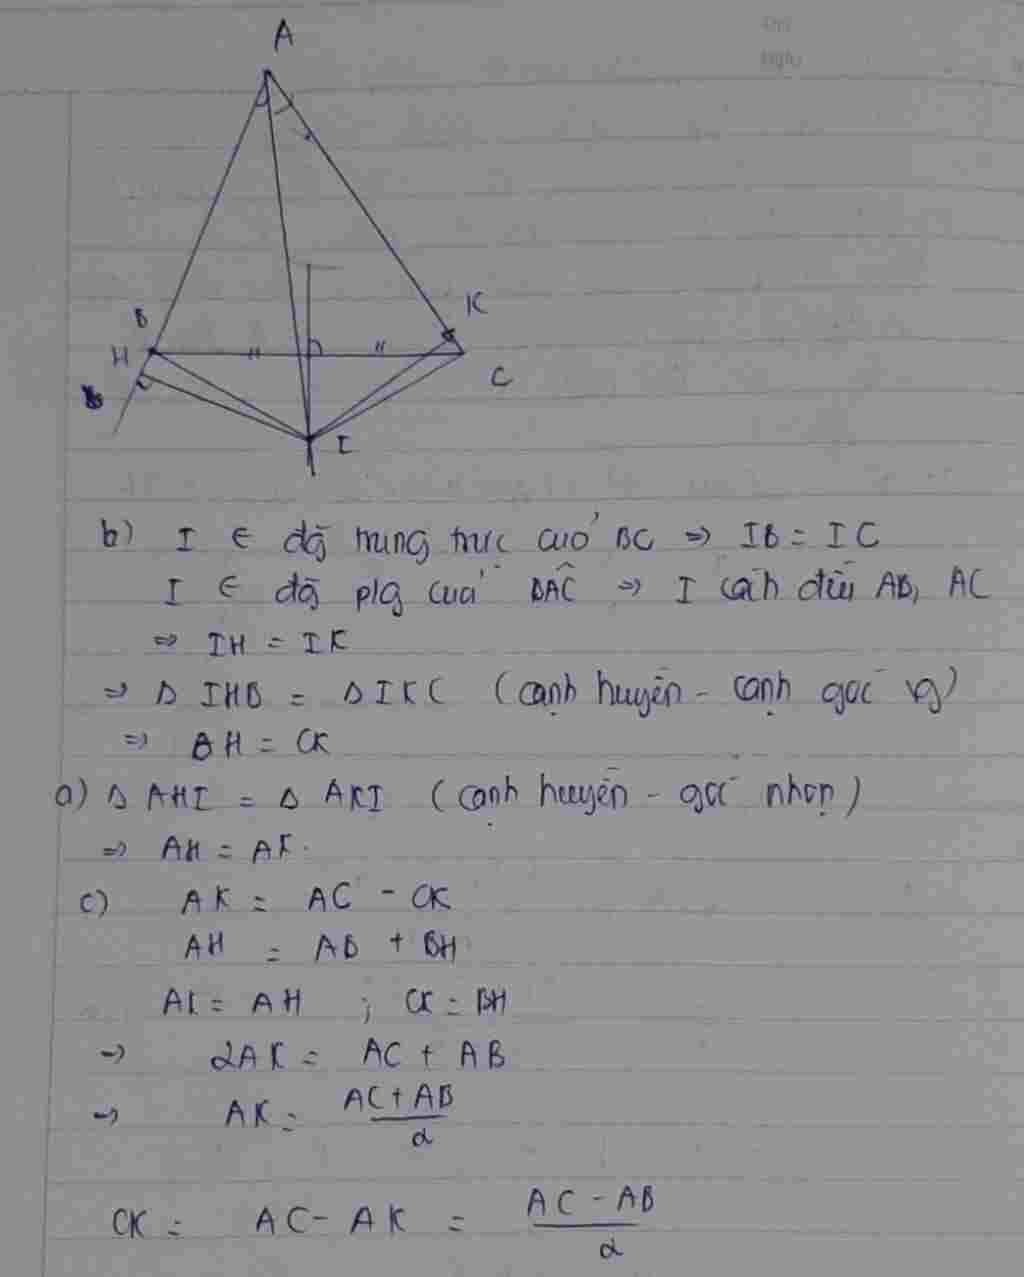 A
B
H
K
C
I
b) I ∈ đg trung trực của BC => IB = IC
I ∈ đg p/g của BÂC => I cách đều AB, AC
=> IH = IK
=> Δ IHB = Δ IKC (cạnh huyền - cạnh góc vg)
=> BH = CK
a) Δ AHI = Δ AKI (cạnh huyền - góc nhọn)
=> AH = AK.
c) AK = AC - CK
AH = AB + BH
AK = AH ; CK = BH
=> 2AK = AC + AB
=> AK = AC + AB / 2
CK = AC - AK = AC - AB / 2